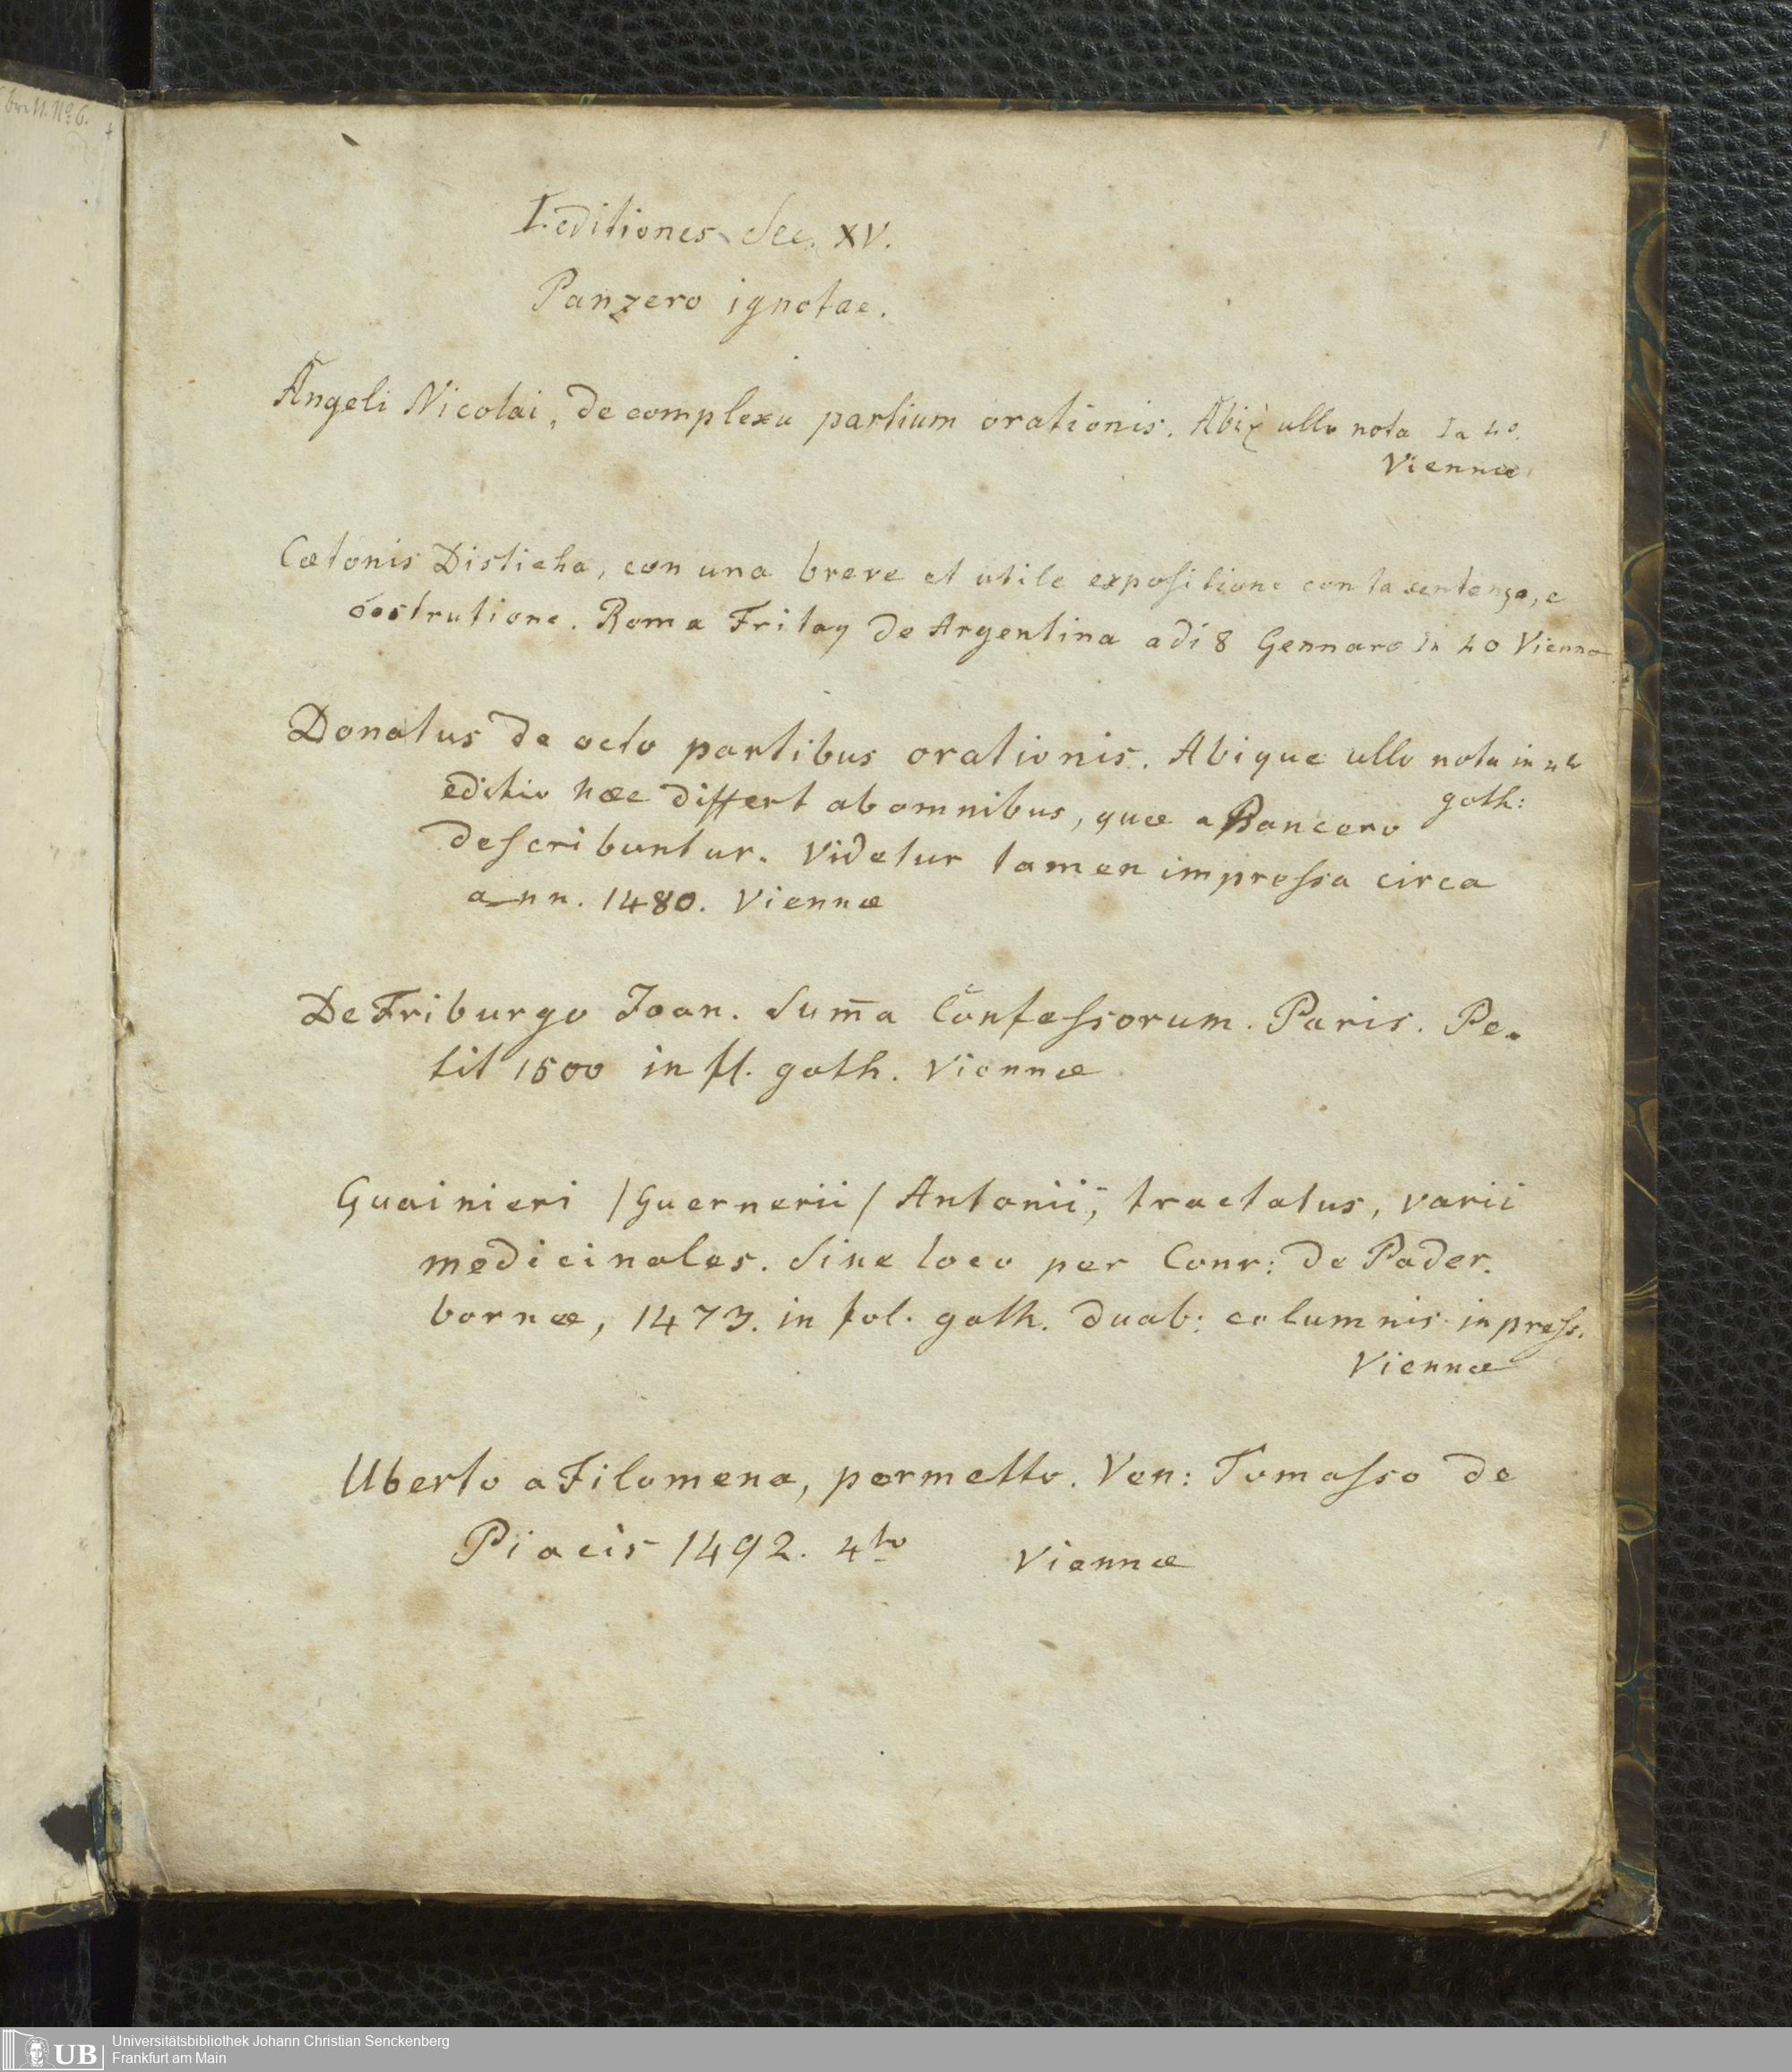 I. editiones Sec. XV.
Panzero ignotae.
Angeli Nicolai, de complexu partium orationis. Abiq ulla nota In 4o.
Viennæ
Cætonis Disticha, con una breve et utile expositione con la sentenza, e
costrutione. Roma Fritag de Argentina adi 8 Gennaro In 40 Vienna
Donatus de octo partibus orationis. Abique ulla nota in 4to
goth:
editio hæc differt ab omnibus, quæ a Pancero
describuntur. Videtur tamen impressa circa
ann. 1480. Viennæ
De Friburgo Joan. Sum̄a Confessorum. Paris. Pe.
tit 1500 in fl. goth. Viennæ
Guainieri /Guernerii/ Antonii, tractatus, varii
medicinales. Sine loco per Conr: de Pader.
bornæ, 1473. in fol. goth. duab: columnis inpress.
Viennæ
Uberto a Filomena, permetto. Ven: Tomasso de
Piacis 1492. 4to Viennæ
UB
Universitätsbibliothek Johann Christian Senckenberg
Frankfurt am Main